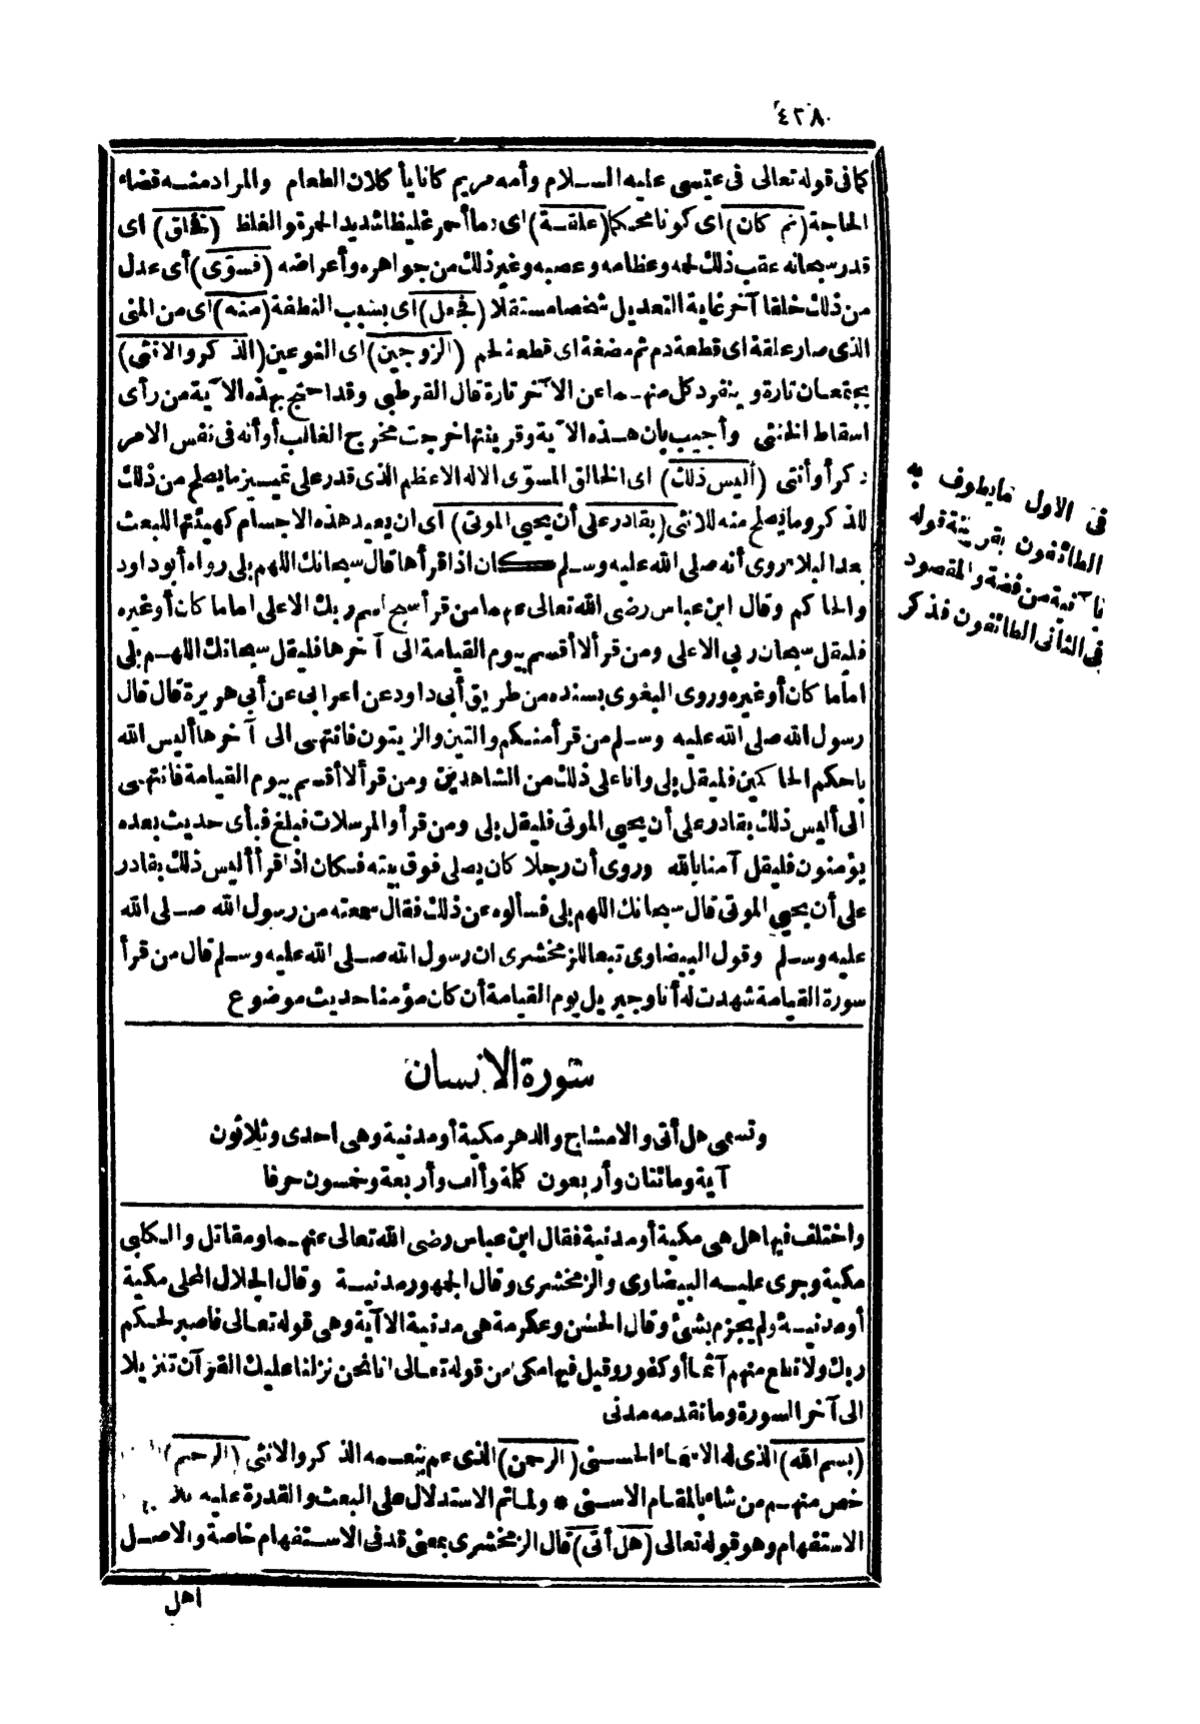 ٤٣٨
كما فى قوله تعالى فى عيسى عليه السلام وأمه مريم كانا يأ كلان الطعام والمراد منه قضاء
الحاجة (ثم كان) اى كونا محكما (علقة) اى دما أحمر غليظا شديد الحمرة والغلظ (فخلق) اى
قدر سبحانه عقب ذلك لحمه وعظامه وعصبه وغير ذلك من جواهره وأعراضه (فسوى) أى عدل
من ذلك خلقا آخر غاية التعديل شخصا مستقلا (فجعل) اى بسبب النطفة (منه) اى من المنى
الذى صار علقة اى قطعة دم ثم مضغة اى قطعة لحم (الزوجين) اى النوعين (الذ كر والانثى)
يجتمعان تارة وينفرد كل منهما عن الآخر تارة قال القرطبى وقد احتج بهذه الآية من رأى
اسقاط الخنثى وأجيب بان هذه الآية وقرينتها خرجت مخرج الغالب أو أنه فى نفس الامر
ذكر أو أنثى (أليس ذلك) اى الخالق المسوّى الاله الاعظم الذى قدر على تمييز ما يصلح من ذلك
للذ كر وما يصلح منه للانثى (بقادر على أن يحيى الموتى) اى ان يعيد هذه الاجسام كهيئتها للبعث
بعد البلا روى أنه صلى الله عليه وسلم كان اذا قرأها قال سبحانك اللهم بلى رواه أبو داود
والحا كم وقال ابن عباس رضى الله تعالى عنهما من قرأ سبح اسم ربك الاعلى اماما كان أو غيره
فليقل سبحان ربى الاعلى ومن قرأ لا أقسم بيوم القيامة الى آخرها فليقل سبحانك اللهم بلى
اماما كان أو غيره وروى البغوى بسنده من طريق أبى داود عن اعرابى عن أبى هريرة قال قال
رسول الله صلى الله عليه وسلم من قرأ منكم والتين والزيتون فانتهى الى آخرها أليس الله
باحكم الحا كمين فليقل بلى وانا على ذلك من الشاهدين ومن قرأ لا أقسم بيوم القيامة فانتهى
الى أليس ذلك بقادر على أن يحيى الموتى فليقل بلى ومن قرأ والمرسلات فبلغ فبأى حديث بعده
يؤمنون فليقل آمنا بالله وروى أن رجلا كان يصلى فوق بيته فكان اذا قرأ أليس ذلك بقادر
على أن يحيى الموتى قال سبحانك اللهم بلى فسألوه عن ذلك فقال سمعته من رسول الله صلى الله
عليه وسلم وقول البيضاوى تبعا للزمخشرى ان رسول الله صلى الله عليه وسلم قال من قرأ
سورة القيامة شهدت له أنا وجبريل يوم القيامة أن كان مؤمنا حديث موضوع
سورة الانسان
وتسمى هل أتى والامشاج والدهر مكية أو مدنية وهى احدى وثلاثون
آية ومائتان وأربعون كلمة وألف وأربعة وخمسون حرفا
واختلف فيها هل هى مكية أو مدنية فقال ابن عباس رضى الله تعالى عنهما ومقاتل والكلبى
مكية وجرى عليه البيضاوى والزمخشرى وقال الجمهور مدنية وقال الجلال المحلى مكية
أو مدنية ولم يجزم بشئ وقال الحسن وعكرمة هى مدنية الا آية وهى قوله تعالى فاصبر لحكم
ربك ولا تطع منهم آثما أو كفورا وقيل فيها مكى من قوله تعالى انا نحن نزلنا عليك القرآن تنزيلا
الى آخر السورة وما تقدمه مدنى
(بسم الله) الذى له الاسماء الحسنى (الرحمن) الذى عم بنعمه الذ كر والانثى (الرحيم)
خص منهم من شاء بالمقام الاسنى * ولما تم الاستدلال على البعث والقدرة عليه
الاستفهام وهو قوله تعالى (هل أتى) قال الزمخشرى بمعنى قد فى الاستفهام خاصة والاصل
اهل
فى الاول ما يطوف به
الطائفون بقرينة قوله
بآنية من فضة والمقصود
فى الثانى الطائفون فذكر